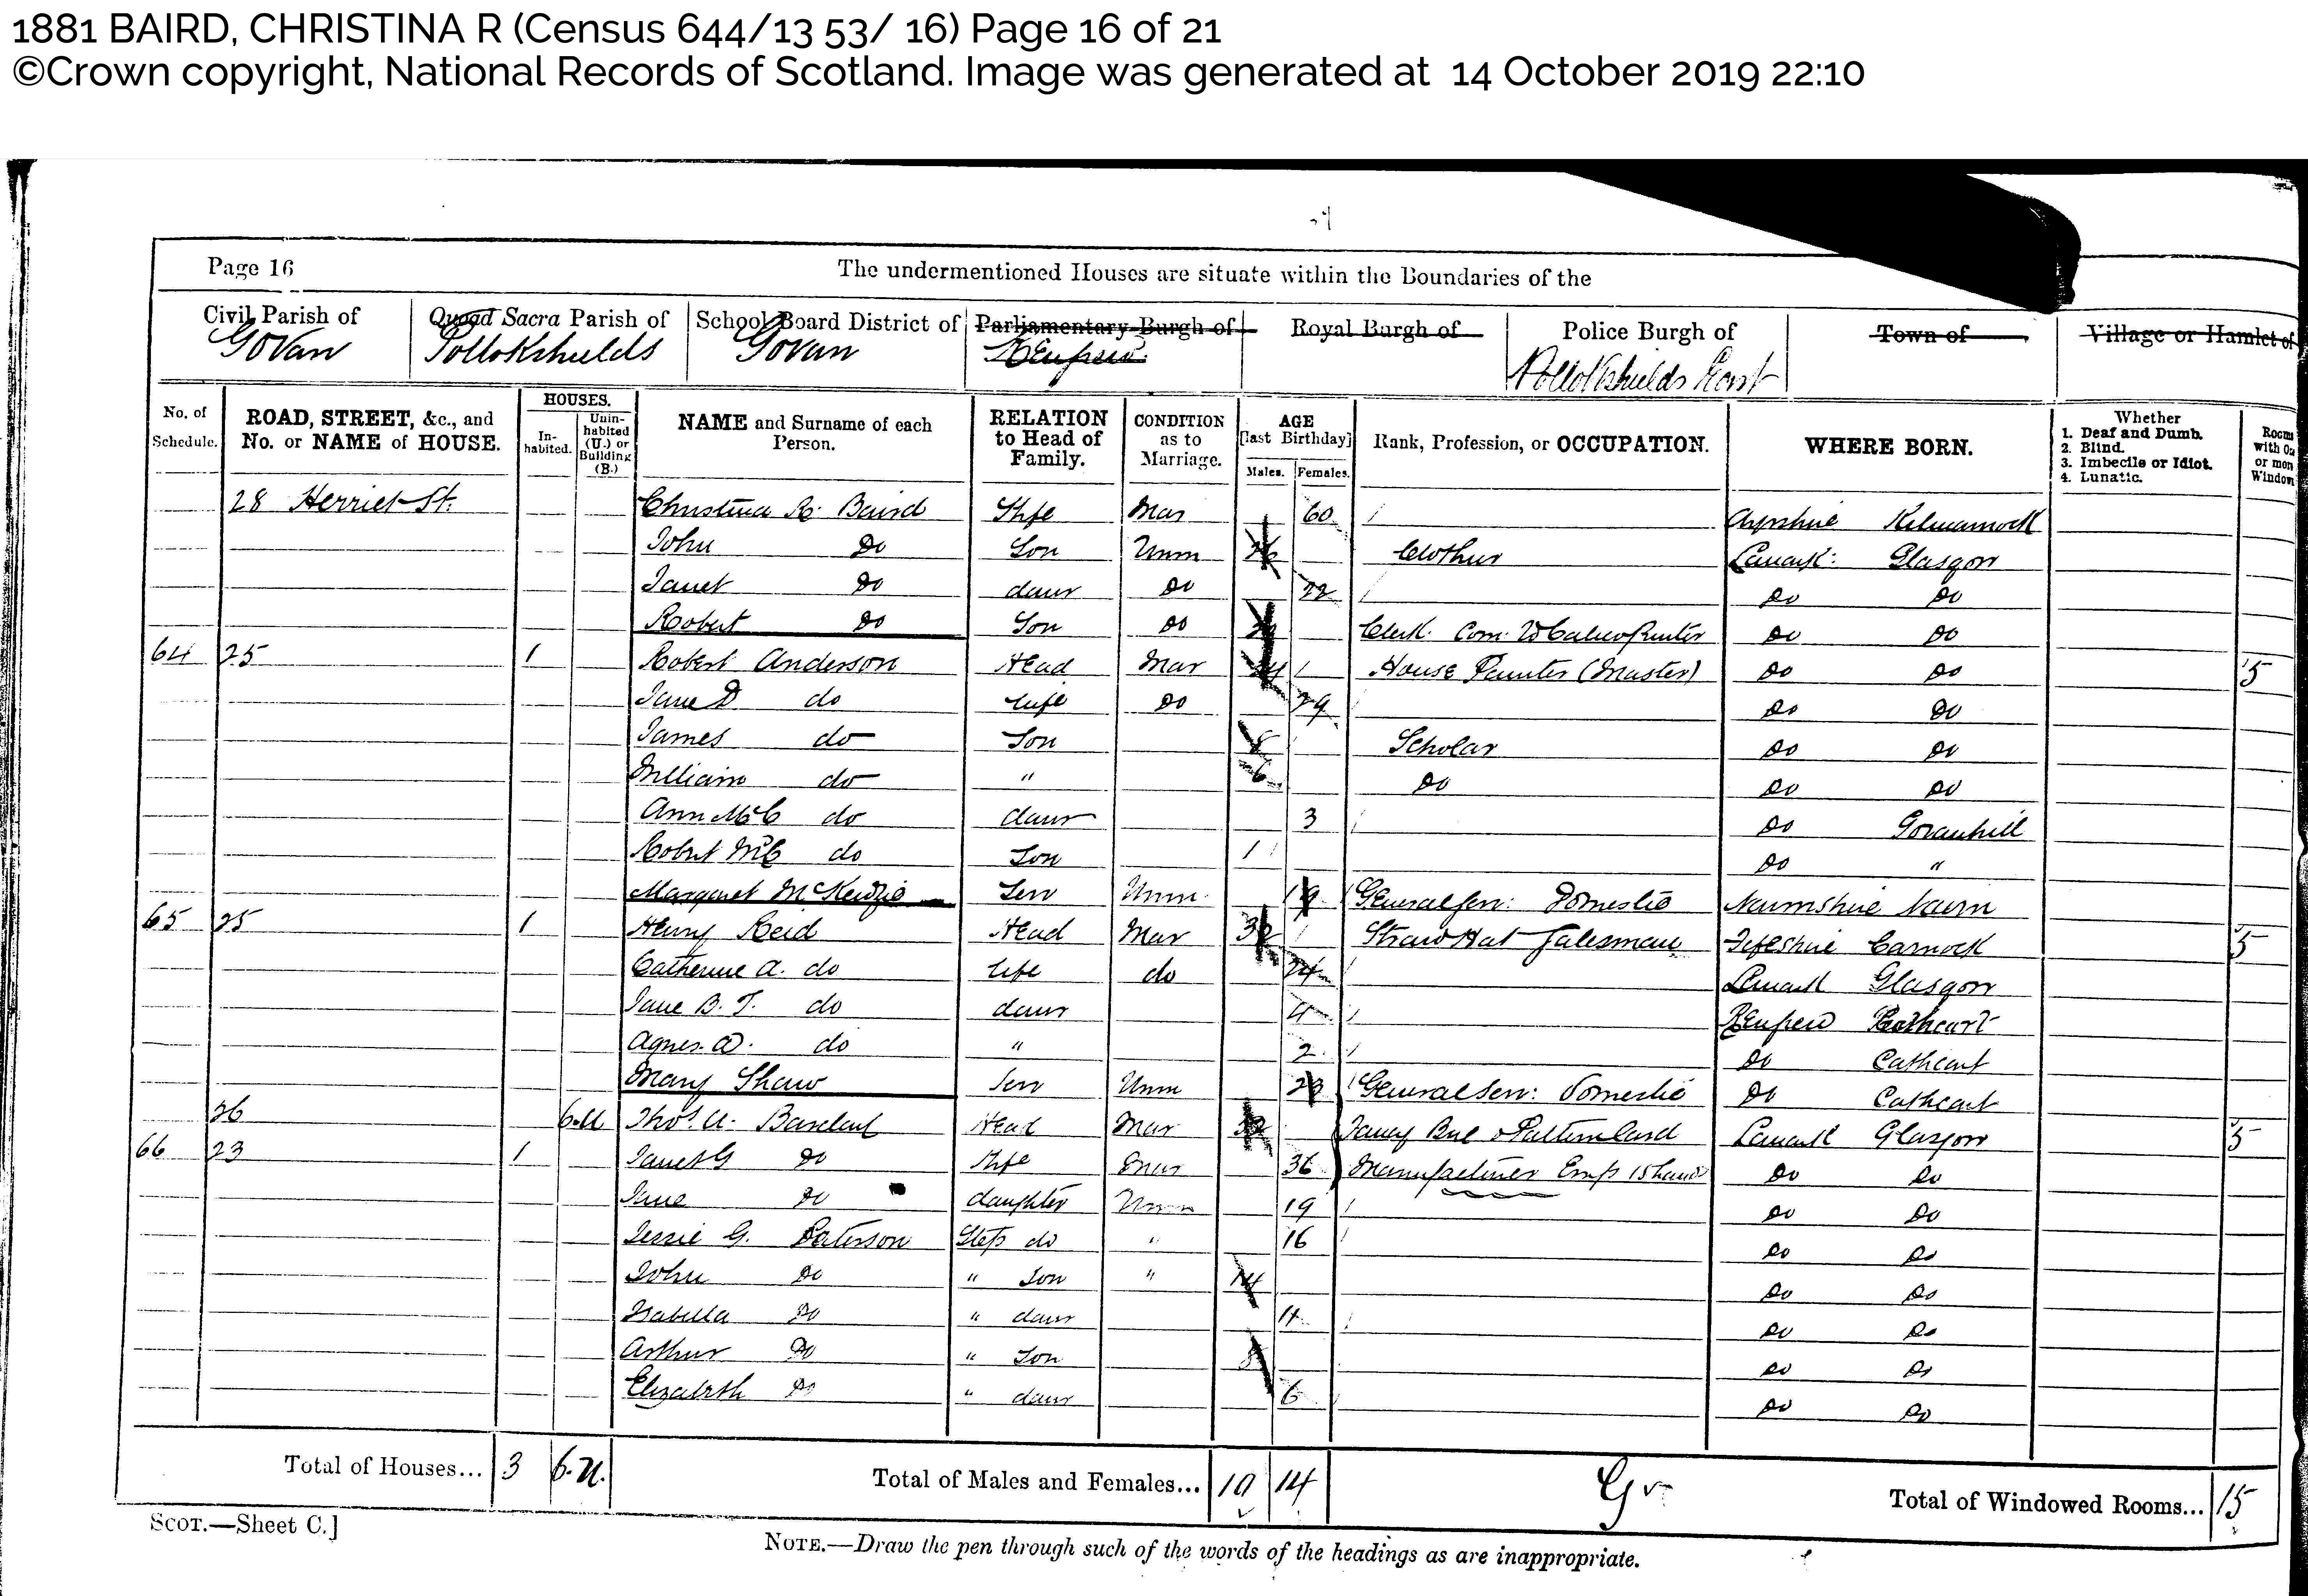 1881 BAIRD, CHRISTINA R (Census 644/13 53/ 16) Page 16 of 21
©Crown copyright, National Records of Scotland. Image was generated at 14 October 2019 22:10
Page 16 The undermentioned Houses are situate within the Boundaries of the
Civil Parish of Quoad Sacra Parish of School Board District of Parliamentary Burgh of Royal Burgh of Police Burgh of Town of Village or Hamlet of
Govan Pollokshields Govan Renfrew Pollokshields East
No. of Schedule. ROAD, STREET, &c., and No. or NAME of HOUSE. HOUSES. Inhabited. Uninhabited (U.) or Building (B.) NAME and Surname of each Person. RELATION to Head of Family. CONDITION as to Marriage. AGE [last Birthday] Males. Females. Rank, Profession, or OCCUPATION. WHERE BORN. Whether 1. Deaf and Dumb. 2. Blind. 3. Imbecile or Idiot. 4. Lunatic. Rooms with One or more Window
28 Herriet St. Christina R. Baird Wife Mar 60 Ayrshire Kilmarnock
John Do Son Unm 26 Clothier Lanark: Glasgow
Janet Do daur Do 22 Do Do
Robert Do Son Do Clerk Com: Do Do
64 25 1 Robert Anderson Head Mar House Painter (Master) Do Do 5
Jane D do Wife Do 29 Do Do
James do Son 8 Scholar Do Do
William do " 6 Do Do Do
Ann McC do daur 3 Do Govanhill
Robert McC do Son 1 Do "
Margaret McKenzie Serv Unm 19 General Serv: Domestic Nairnshire Nairn
65 25 1 Henry Reid Head Mar 32 Straw Hat Salesman Fifeshire Carnock 5
Catherine A. do Wife do 24 Lanark Glasgow
Jane B. T. do daur 4 Renfrew Cathcart
Agnes D. do " 2 Do Cathcart
Mary Shaw Serv Unm 23 General Serv: Domestic Do Cathcart
26 6.U Thos. U. Barclay Head Mar Fancy Box & Pattern Card Lanark Glasgow 5
66 23 1 Janet G Do Wife Mar 36 Manufacturer Emp 15 hands Do Do
Jane Do daughter Unm 19 Do Do
Jessie G. Paterson Step do " 16 Do Do
John Do " Son " 14 Do Do
Isabella Do " daur 11 Do Do
Arthur Do " Son 8 Do Do
Elizabeth Do " daur 6 Do Do
Total of Houses... 3 6.U. Total of Males and Females... 10 14 Total of Windowed Rooms... 15
SCOT.—Sheet C.]
NOTE.—Draw the pen through such of the words of the headings as are inappropriate.